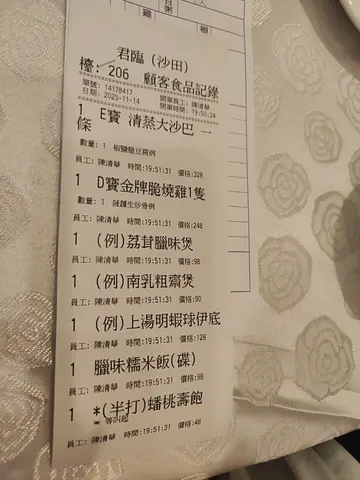 雞
椒
君臨 (沙田)
檯: 206 顧客食品記錄
單號: 14178417
開單員工: 陳清華
日期: 2025-11-14
開單時間: 19:50:34
1 E寶 清蒸大沙巴 一
條
數量: 1 椒鹽脆豆腐例
員工: 陳清華 時間:19:51:31 價格:328
1 D寶金牌脆燒雞1隻
數量: 1 菠蘿生炒骨例
員工: 陳清華 時間:19:51:31 價格:248
1 (例)荔茸臘味煲
員工: 陳清華 時間:19:51:31 價格:98
1 (例)南乳粗齋煲
員工: 陳清華 時間:19:51:31 價格:90
1 (例)上湯明蝦球伊底
員工: 陳清華 時間:19:51:31 價格:128
1 臘味糯米飯(碟)
員工: 陳清華 時間:19:51:31 價格:98
1 *(半打)蟠桃壽飽
* 等叫起
員工: 陳清華 時間:19:51:31 價格:48